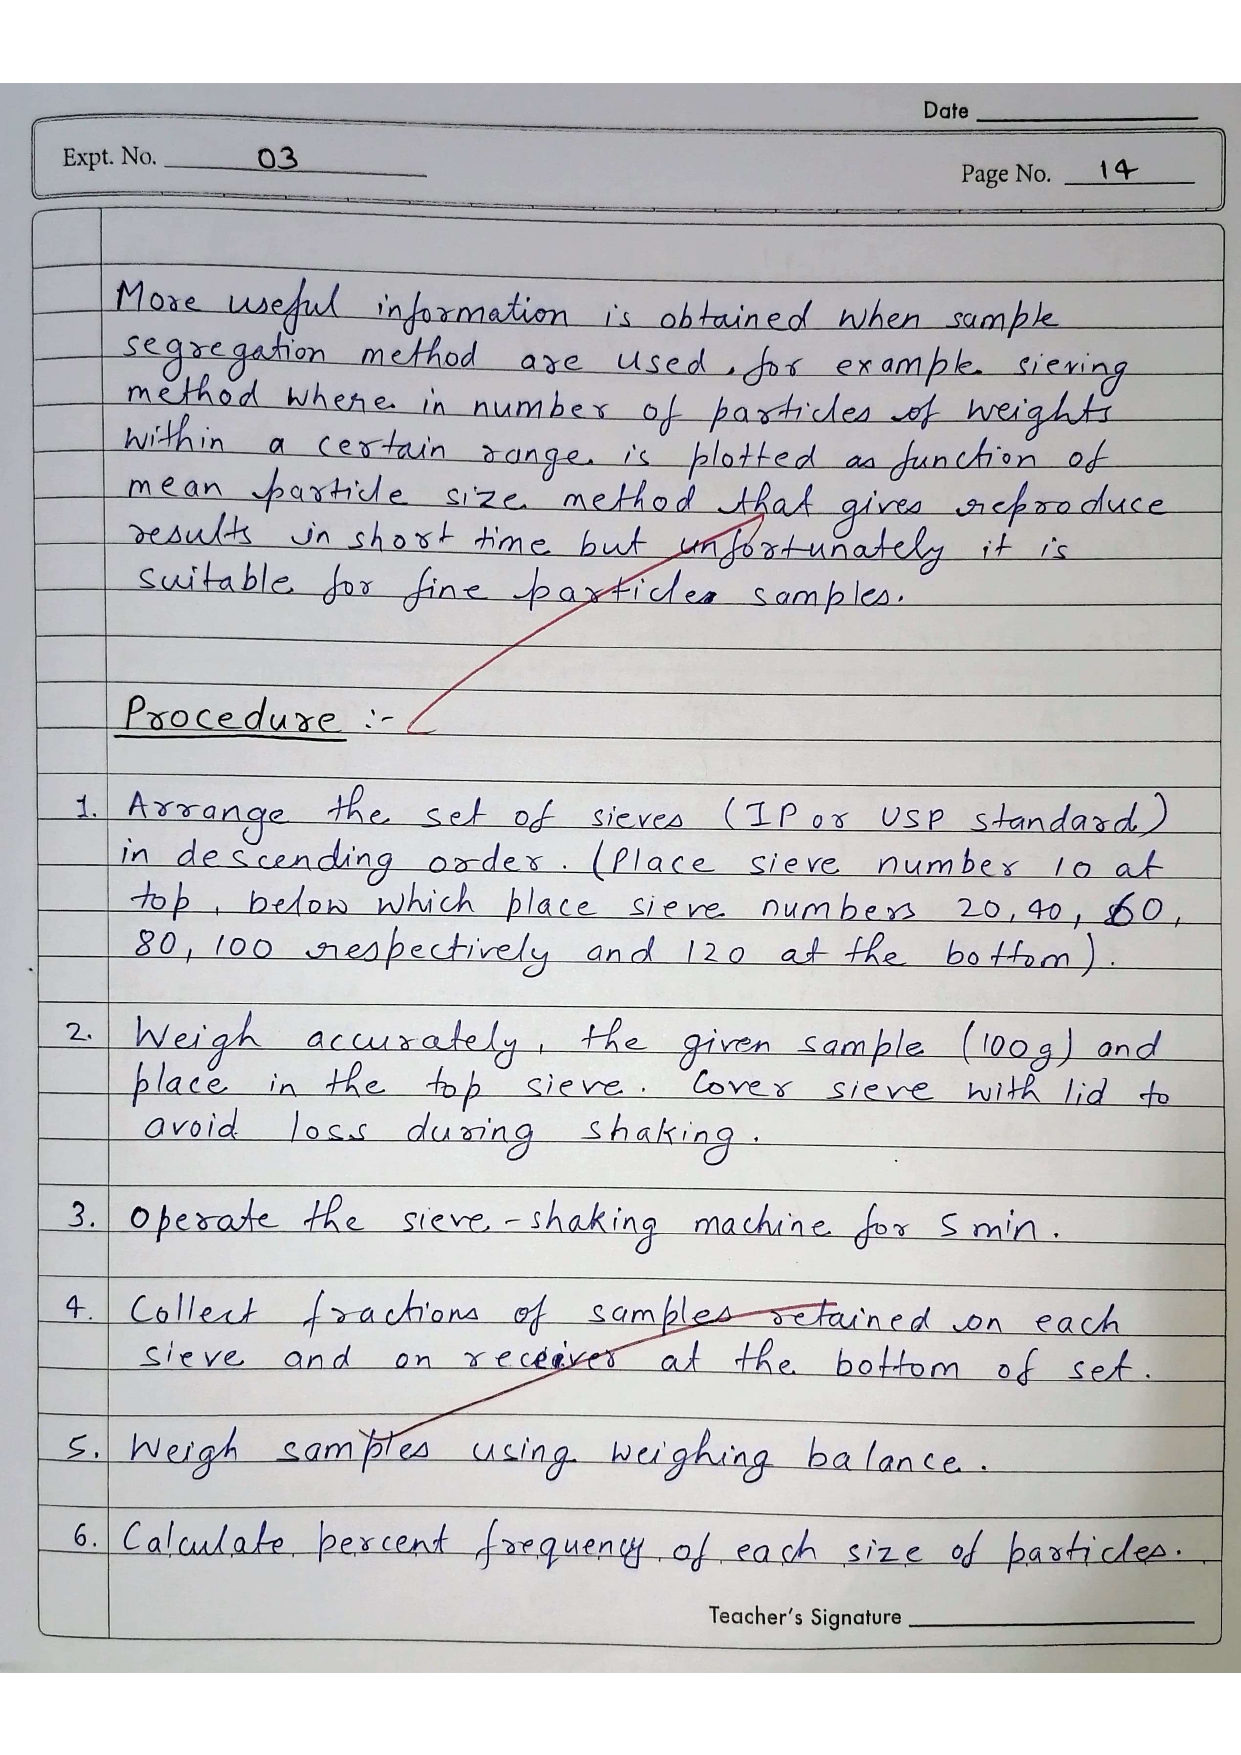 Date
Expt. No. 03
Page No. 14
More useful information is obtained when sample
segregation method are used, for example sieving
method where in number of particles of weights
within a certain range is plotted as function of
mean particle size method that gives reproduce
results in short time but unfortunately it is
suitable for fine particles samples.
Procedure :-
1. Arrange the set of sieves (IP or USP standard)
in descending order. (Place sieve number 10 at
top, below which place sieve numbers 20, 40, 60,
80, 100 respectively and 120 at the bottom).
2. Weigh accurately, the given sample (100g) and
place in the top sieve. Cover sieve with lid to
avoid loss during shaking.
3. Operate the sieve-shaking machine for 5 min.
4. Collect fractions of samples retained on each
sieve and on receiver at the bottom of set.
5. Weigh samples using weighing balance.
6. Calculate percent frequency of each size of particles.
Teacher's Signature